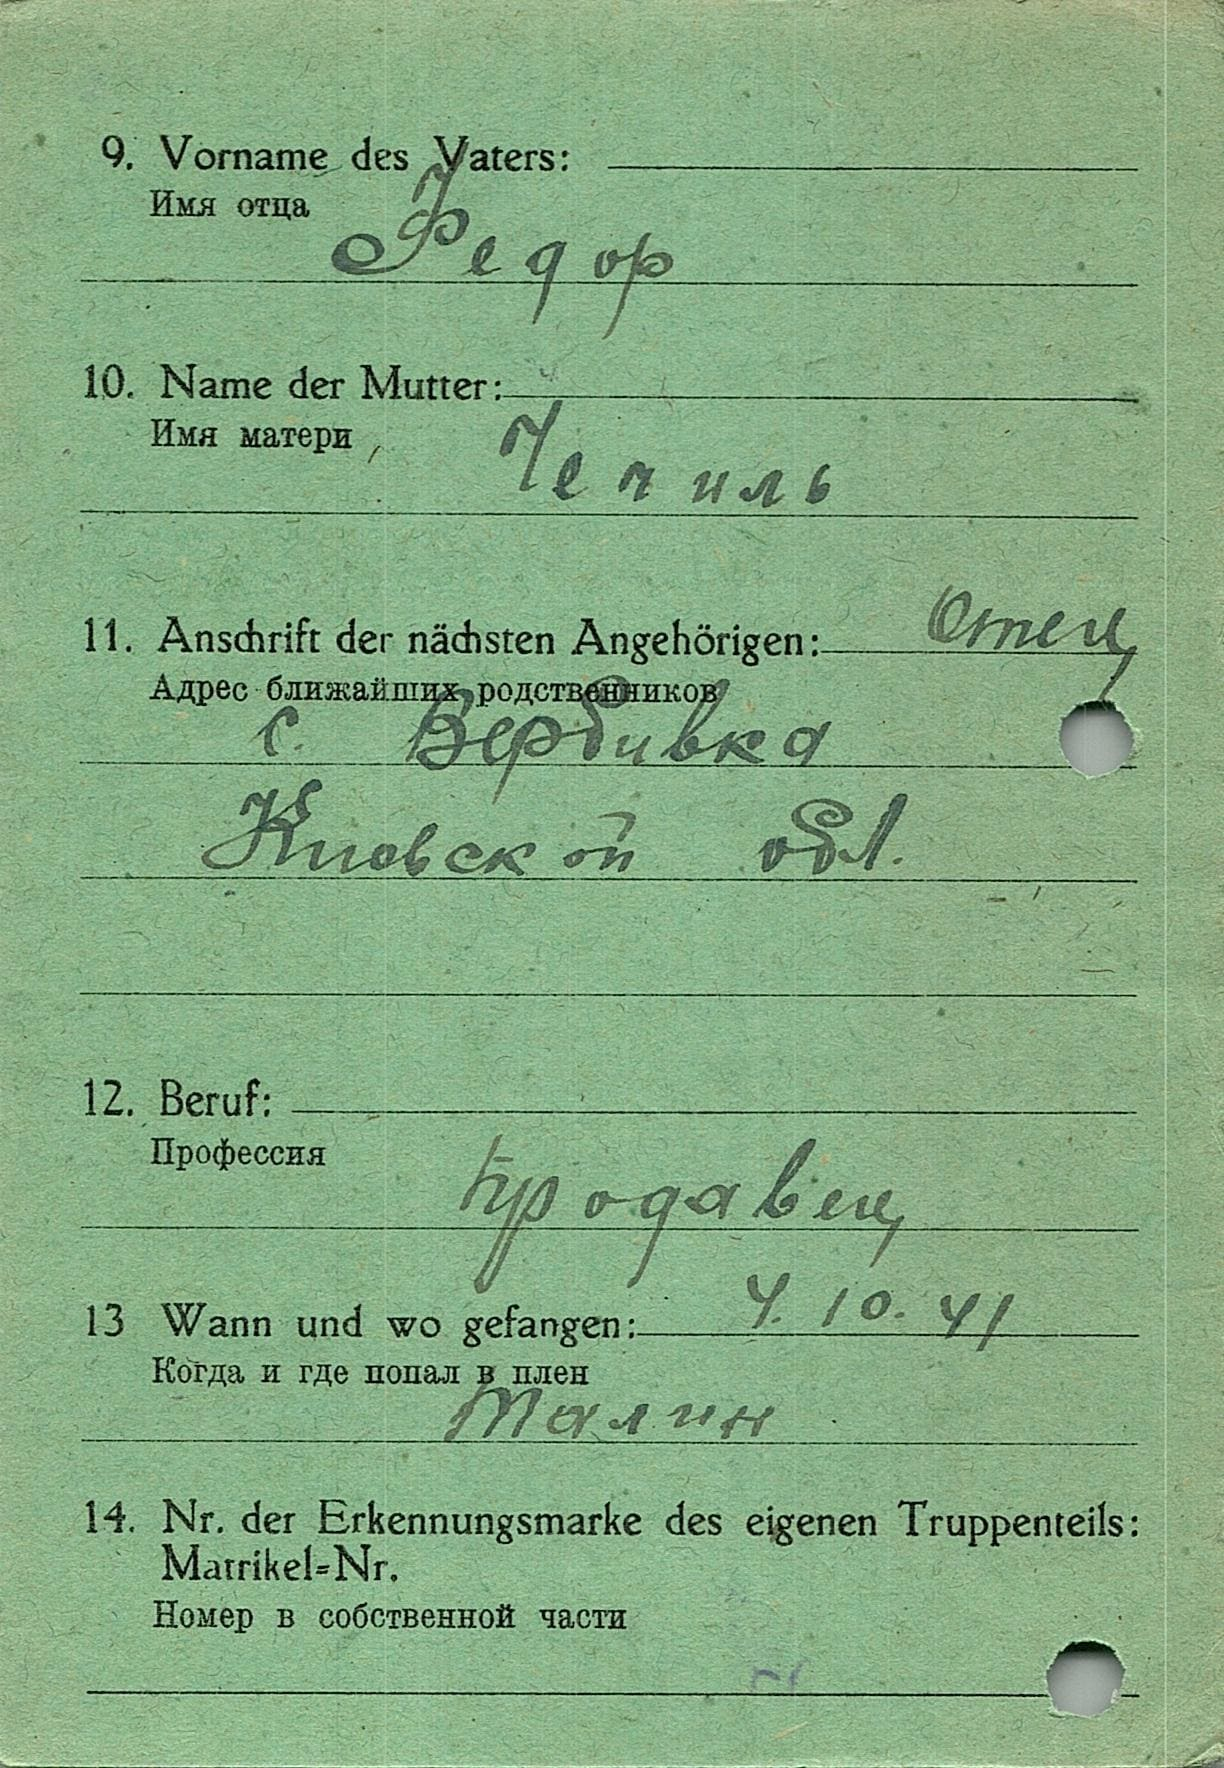 9. Vorname des Vaters:
Имя отца
Федор
10. Name der Mutter:
Имя матери
Чечиль
11. Anschrift der nächsten Angehörigen: Отец
Адрес ближайших родственников
с. Вербивка
Киовской обл.
12. Beruf:
Профессия
продавец
13 Wann und wo gefangen: 4.10.41
Когда и где попал в плен
Талин
14. Nr. der Erkennungsmarke des eigenen Truppenteils:
Matrikel=Nr.
Номер в собственной части